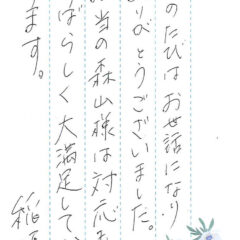 のたびはお世話になり
りがとうございました。
当の森山様は対応も
ばらしく大満足してい
ます。
稲